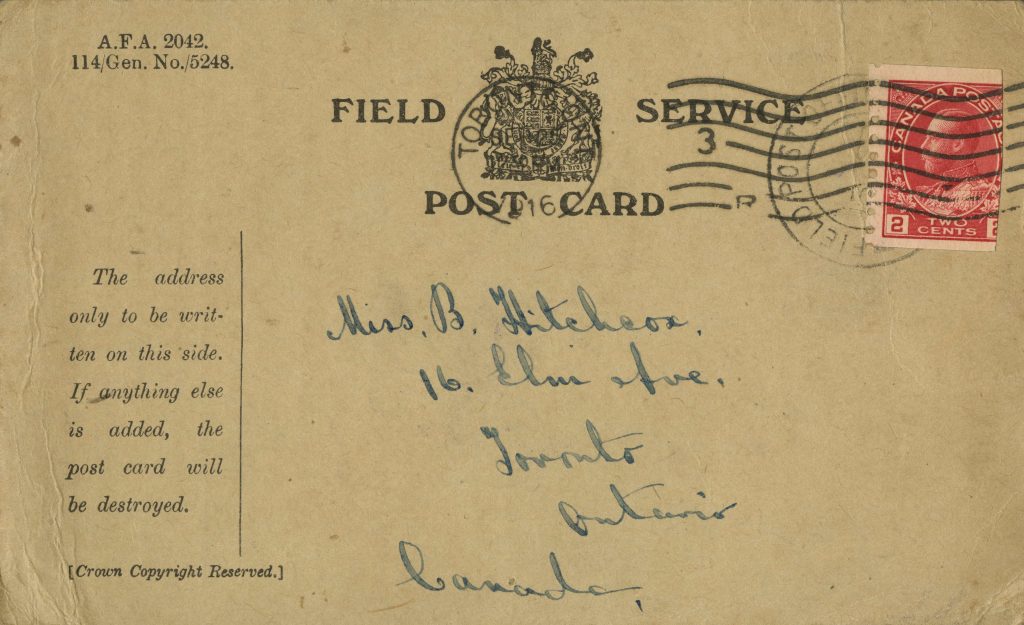 A.F.A. 2042.
114/Gen. No./5248.
FIELD SERVICE
POST CARD
TORONTO, ONT.
16
3
R
FIELD POST OF
CANADA POSTAGE
2 TWO CENTS 2
The address
only to be writ-
ten on this side.
If anything else
is added, the
post card will
be destroyed.
[Crown Copyright Reserved.]
Miss. B. Hitchcox.
16. Elm Ave.
Toronto
Ontario
Canada,